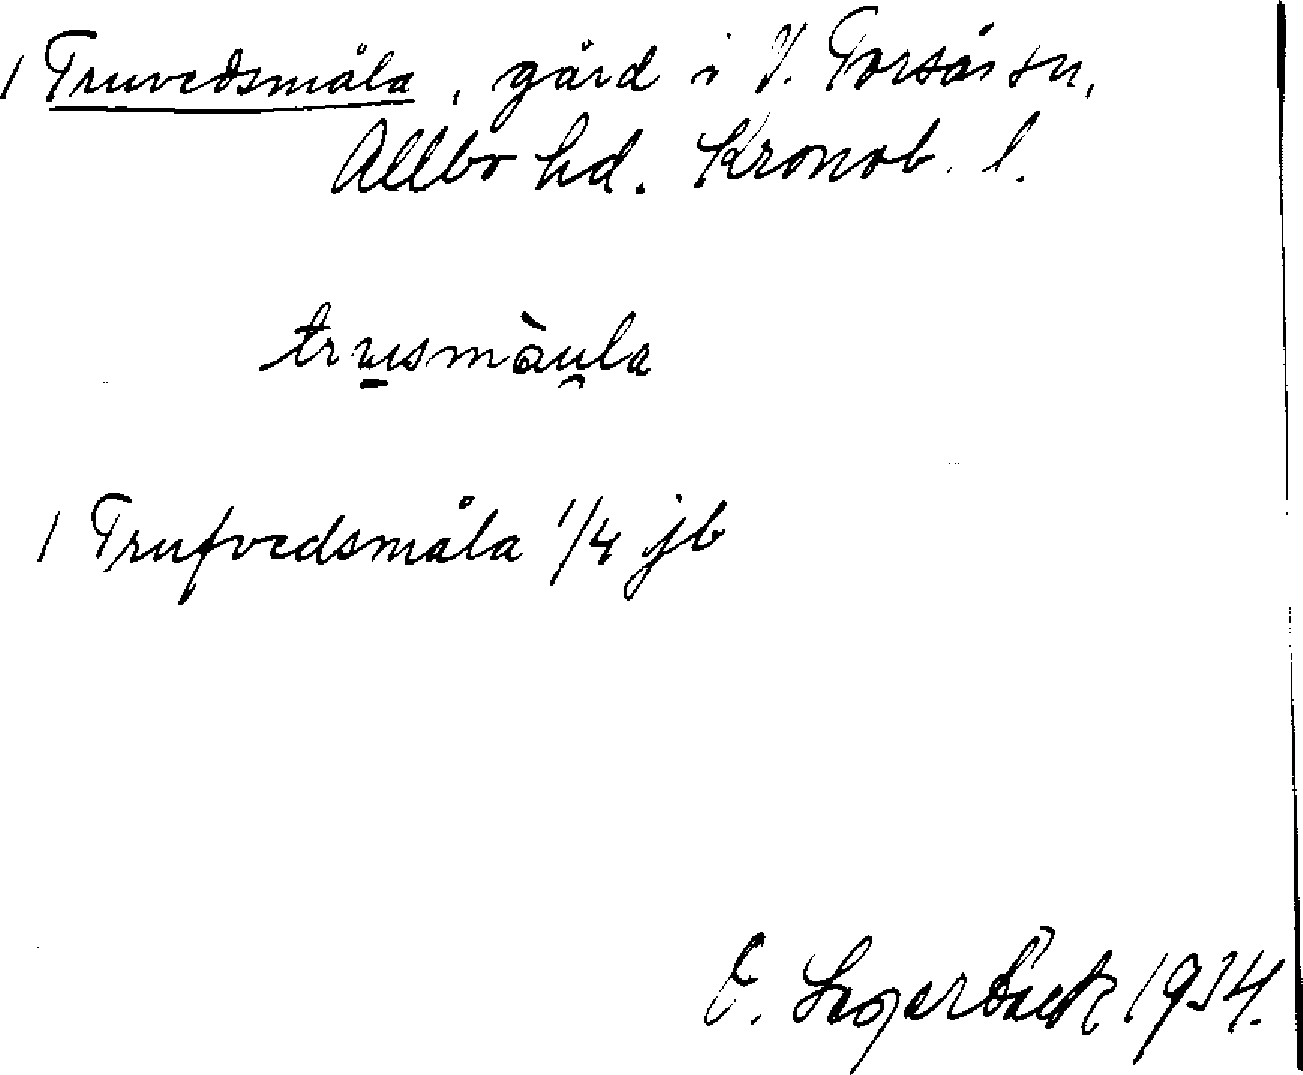 1 Truvedsmåla, gård i V. Torsås sn,
Allbo hd. Kronob. l.
trusmàula
1 Trufvedsmåla 1/4 jb
E. Legerbäck 1934.